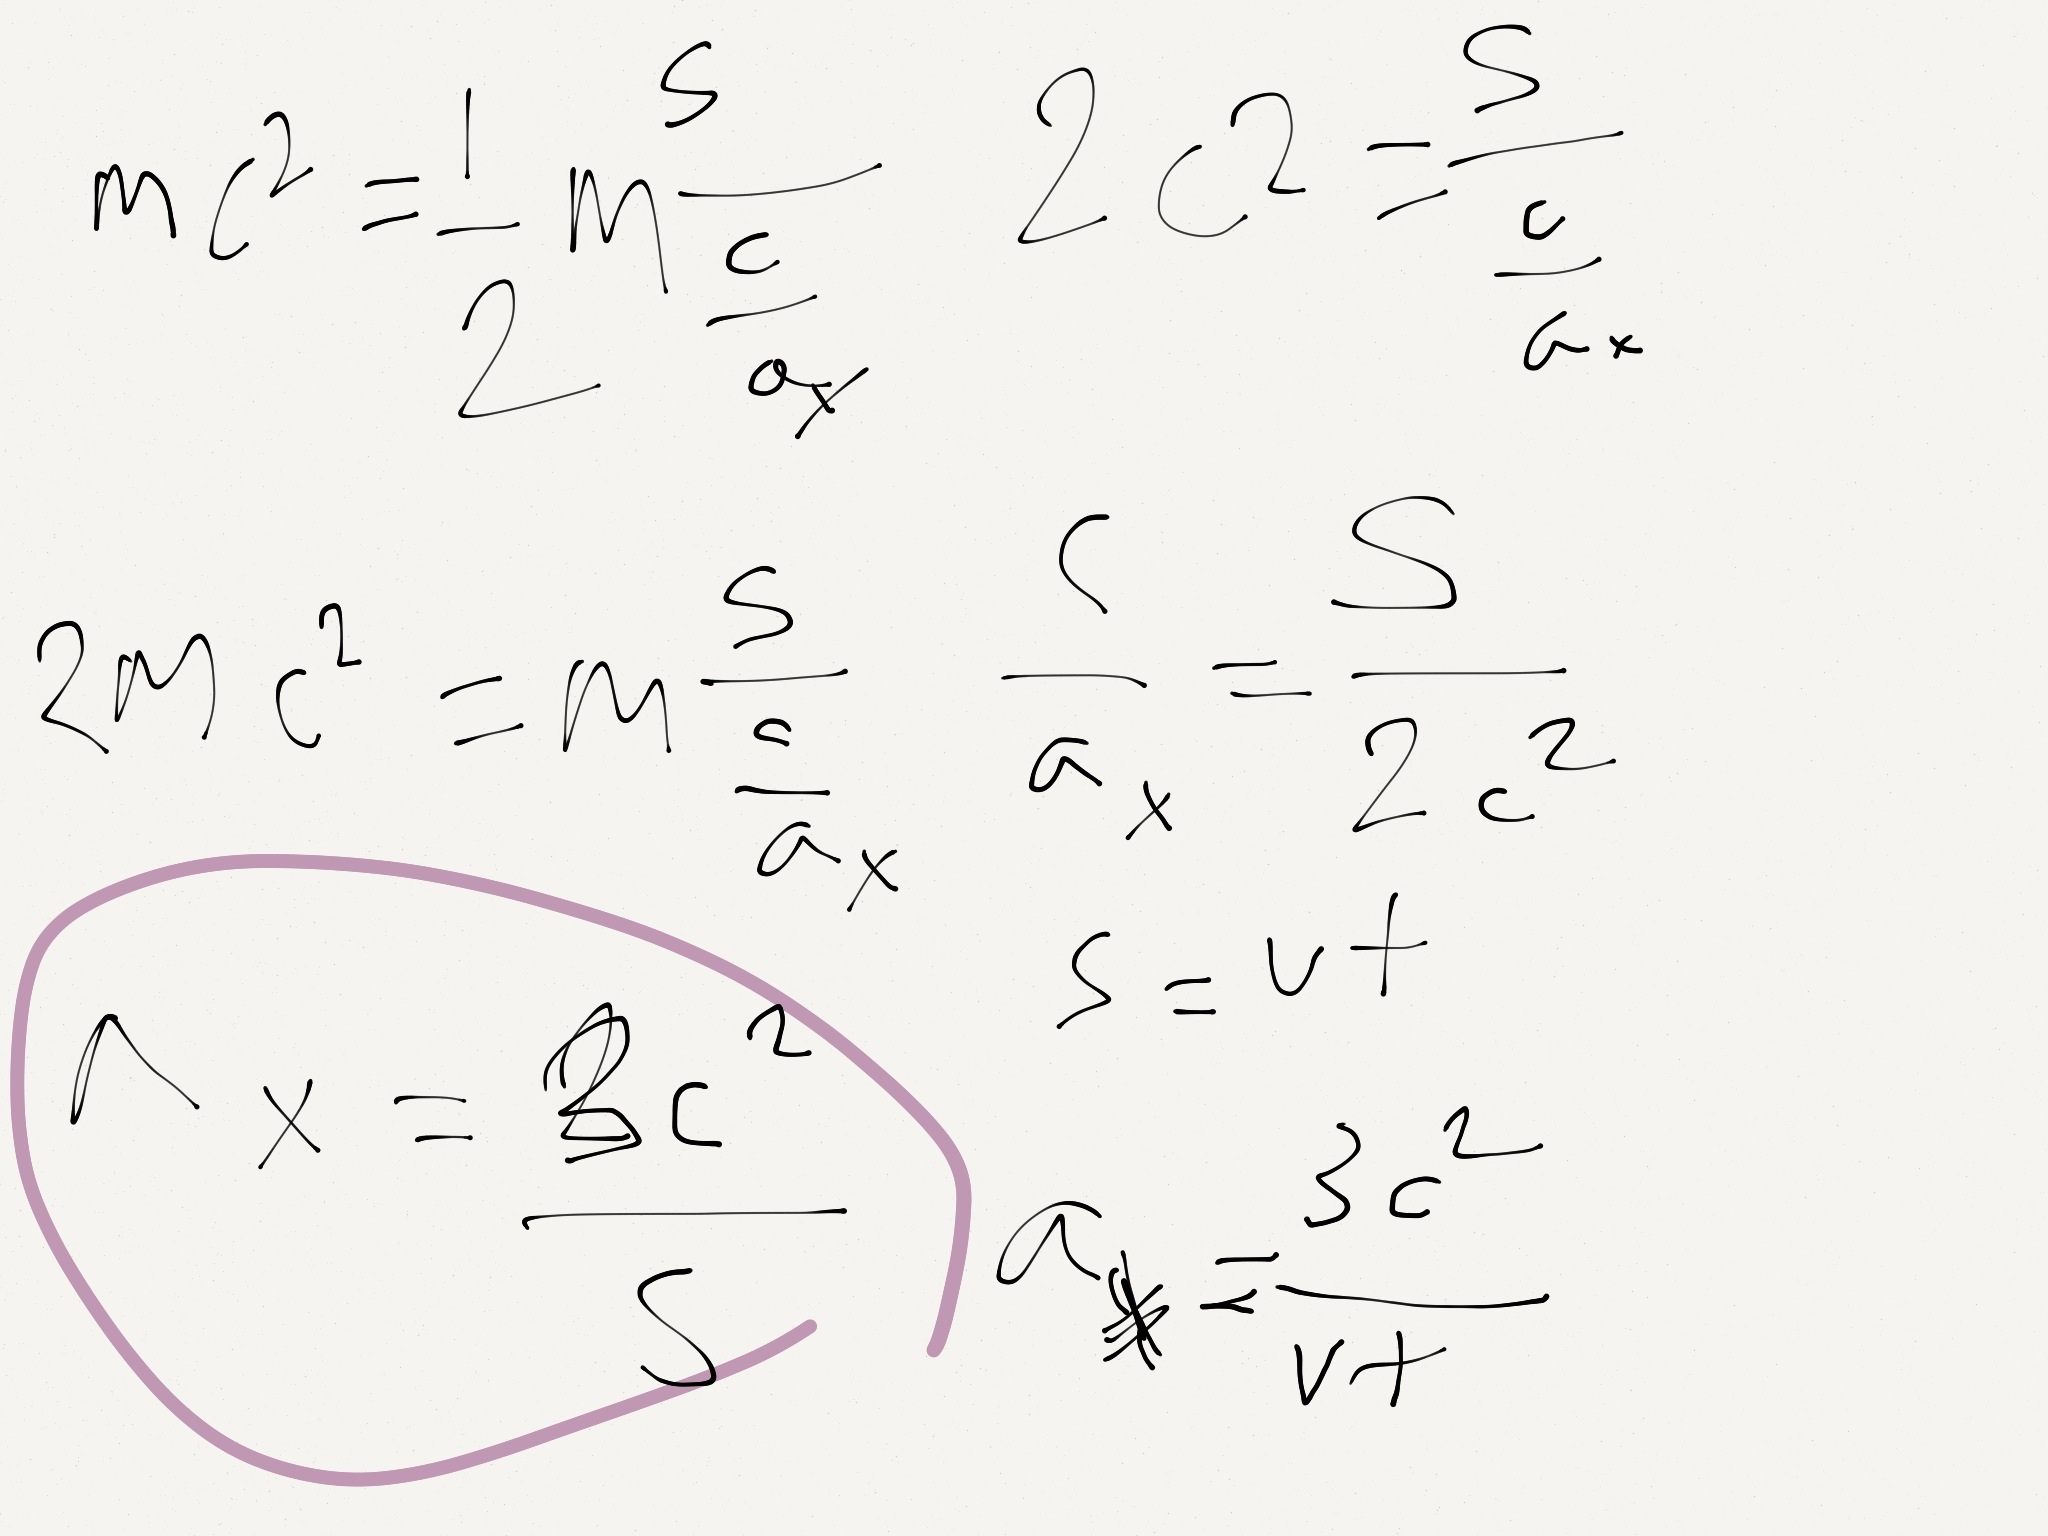 mc² = 1/2 m s/(c/ax)
2c² = s/(c/ax)
2mc² = m s/(c/ax)
c/ax = s/2c²
s = vt
x = c²/s
a = 3c²/vt